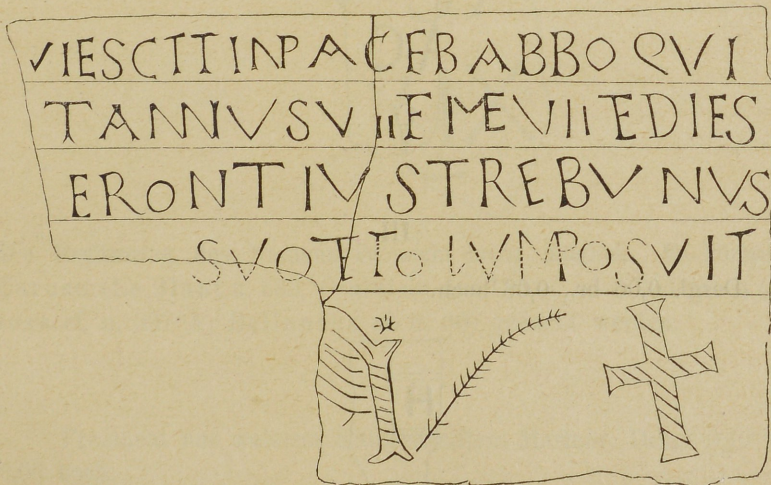 VIESCIT IN PACE BABBO QVI
TANNVS VIIII E ME VIII E DIES
ERONTIVS TREBVNVS
SVO TITOLVM POSVIT